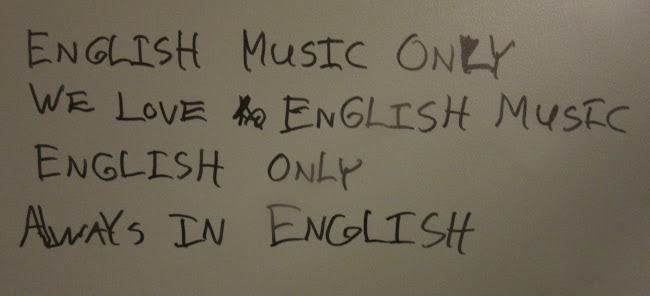 ENGLISH MUSIC ONLY
WE LOVE ENGLISH MUSIC
ENGLISH ONLY
ALWAYS IN ENGLISH